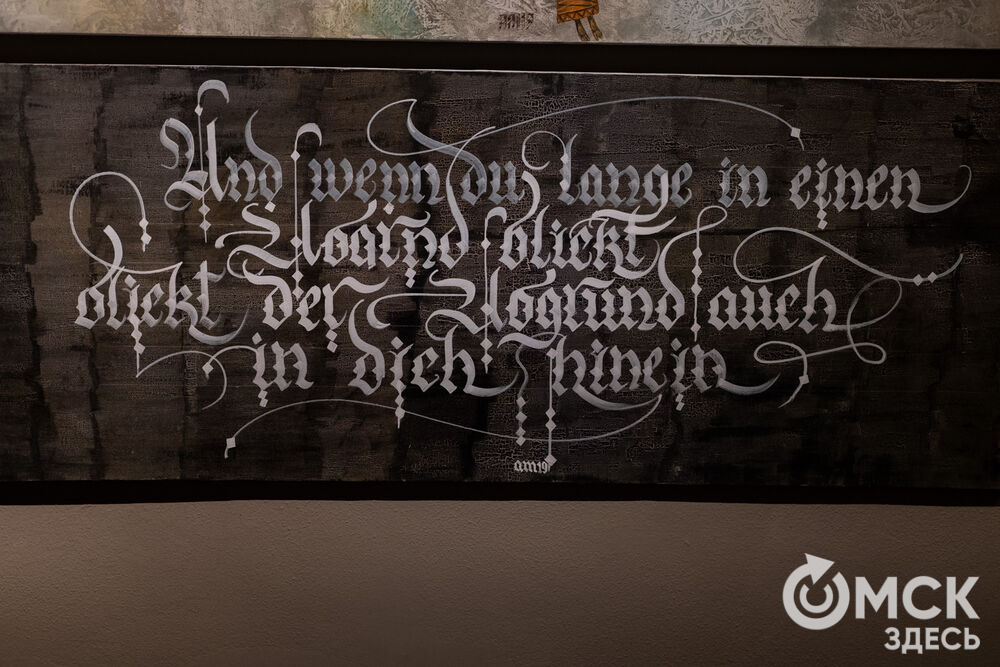 am19
Und wenn du lange in einen
Abgrund blickt
blickt der Abgrund auch
in dich hinein
am19
ОМСК
ЗДЕСЬ